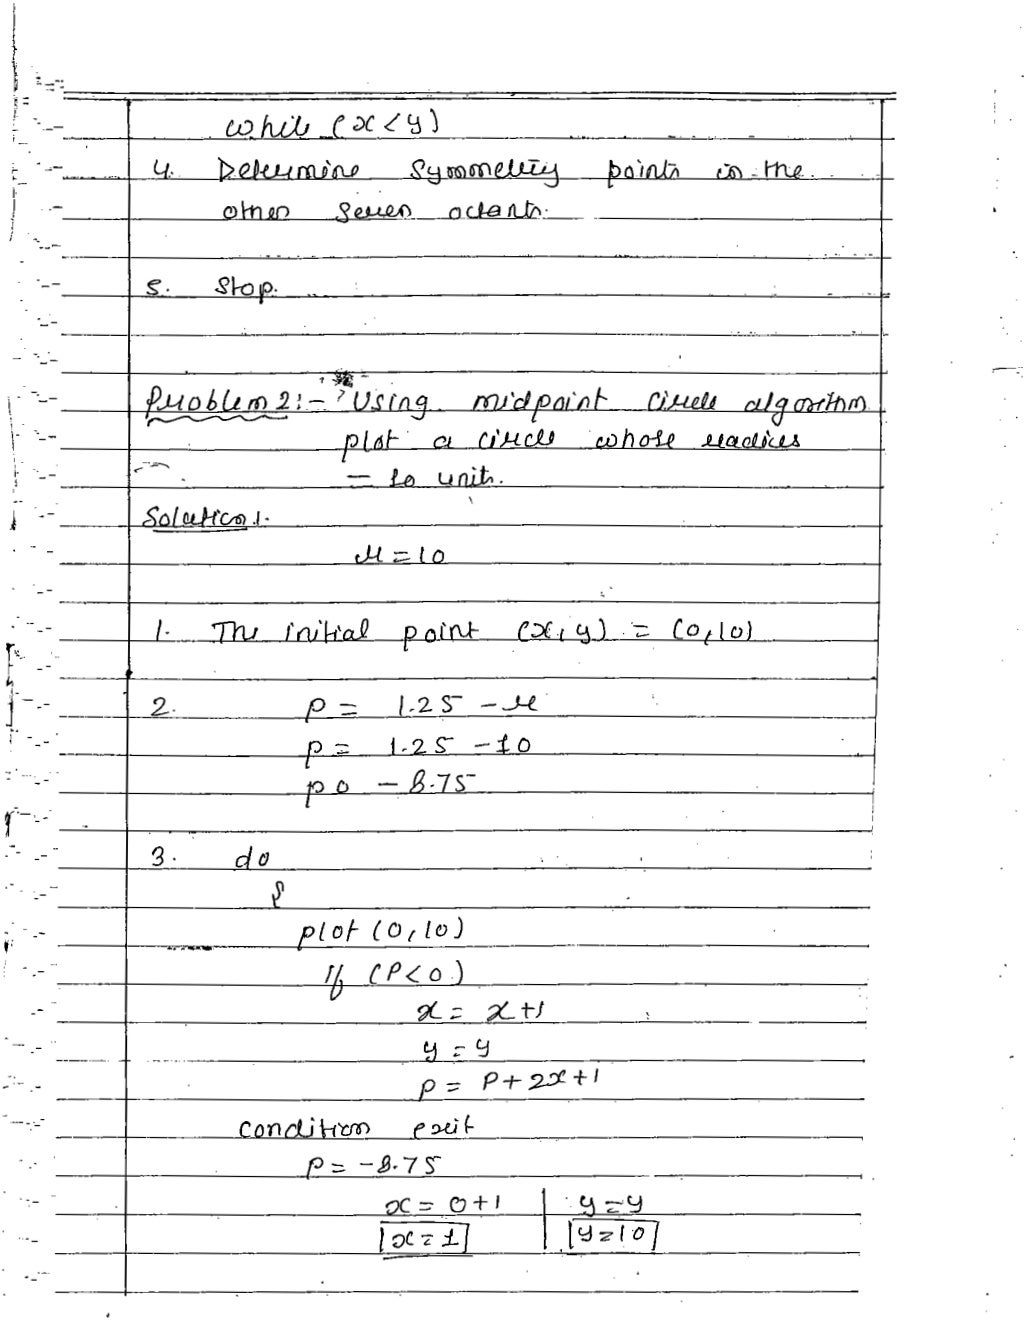 while (x<y)
4. Determine Symmetry points in the
other seven octants.
5. Stop.
Problem 2:- Using midpoint circle algorithm
plot a circle whose radius
= 10 units.
Solution:-
r = 10
1. The initial point (x, y) = (0, 10)
2. p = 1.25 - r
p = 1.25 - 10
p = - 8.75
3. do
{
plot (0, 10)
If (P<0)
x = x+1
y = y
p = P+2x+1
condition exit
p = -8.75
x = 0+1 | y = y
x = 1 | y = 10